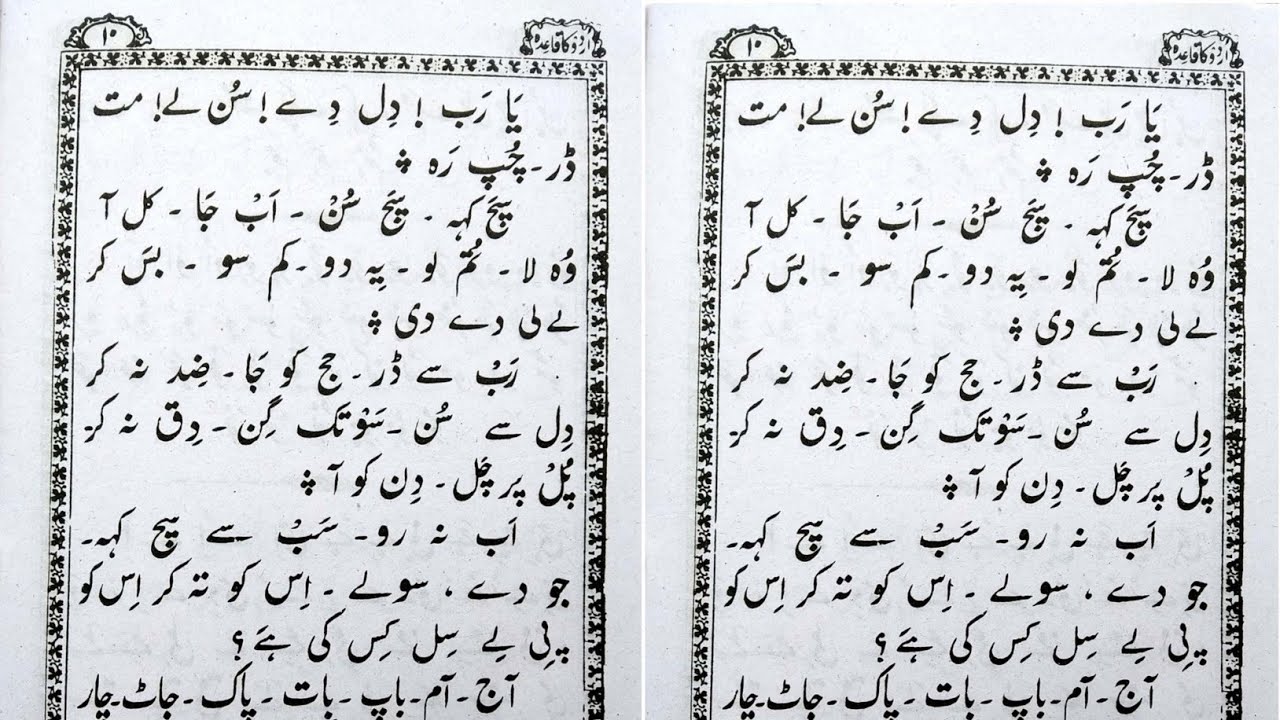 اردو کا قاعدہ ۱۰
یَا رَب ! دِل دِے ! سُن لے! مت
ڈر۔ چُپ رَہ ؞
سَچ کہہ ۔ سَچ سُنْ ۔ اَبْ جَا ۔ کل آ
وُہ لا ۔ تُم لو ۔ یِہ دو ۔ کم سو ۔ بسَ کر
لے لی دے دی ؞
رَبْ سے ڈر۔ حج کو جَا۔ ضِد نہ کر
دِل سے سُن ۔ سَوْ تک گِن ۔ دِق نہ کر
پُلْ پر چَل ۔ دِن کو آ ؞
اَب نہ رو۔ سَبْ سے سچ کہہ۔
جو دے ، سولے ۔ اِس کو تہ کر اِس کو
پِی لے سِل کِس کی ہَے ؟
آج ۔ آم ۔ باپ ۔ بات ۔ پاک ۔ جاٹ ۔ چار
اردو کا قاعدہ ۱۰
یَا رَب ! دِل دِے ! سُن لے! مت
ڈر۔ چُپ رَہ ؞
سَچ کہہ ۔ سَچ سُنْ ۔ اَبْ جَا ۔ کل آ
وُہ لا ۔ تُم لو ۔ یِہ دو ۔ کم سو ۔ بسَ کر
لے لی دے دی ؞
رَبْ سے ڈر۔ حج کو جَا۔ ضِد نہ کر
دِل سے سُن ۔ سَوْ تک گِن ۔ دِق نہ کر
پُلْ پر چَل ۔ دِن کو آ ؞
اَب نہ رو۔ سَبْ سے سچ کہہ۔
جو دے ، سولے ۔ اِس کو تہ کر اِس کو
پِی لے سِل کِس کی ہَے ؟
آج ۔ آم ۔ باپ ۔ بات ۔ پاک ۔ جاٹ ۔ چار